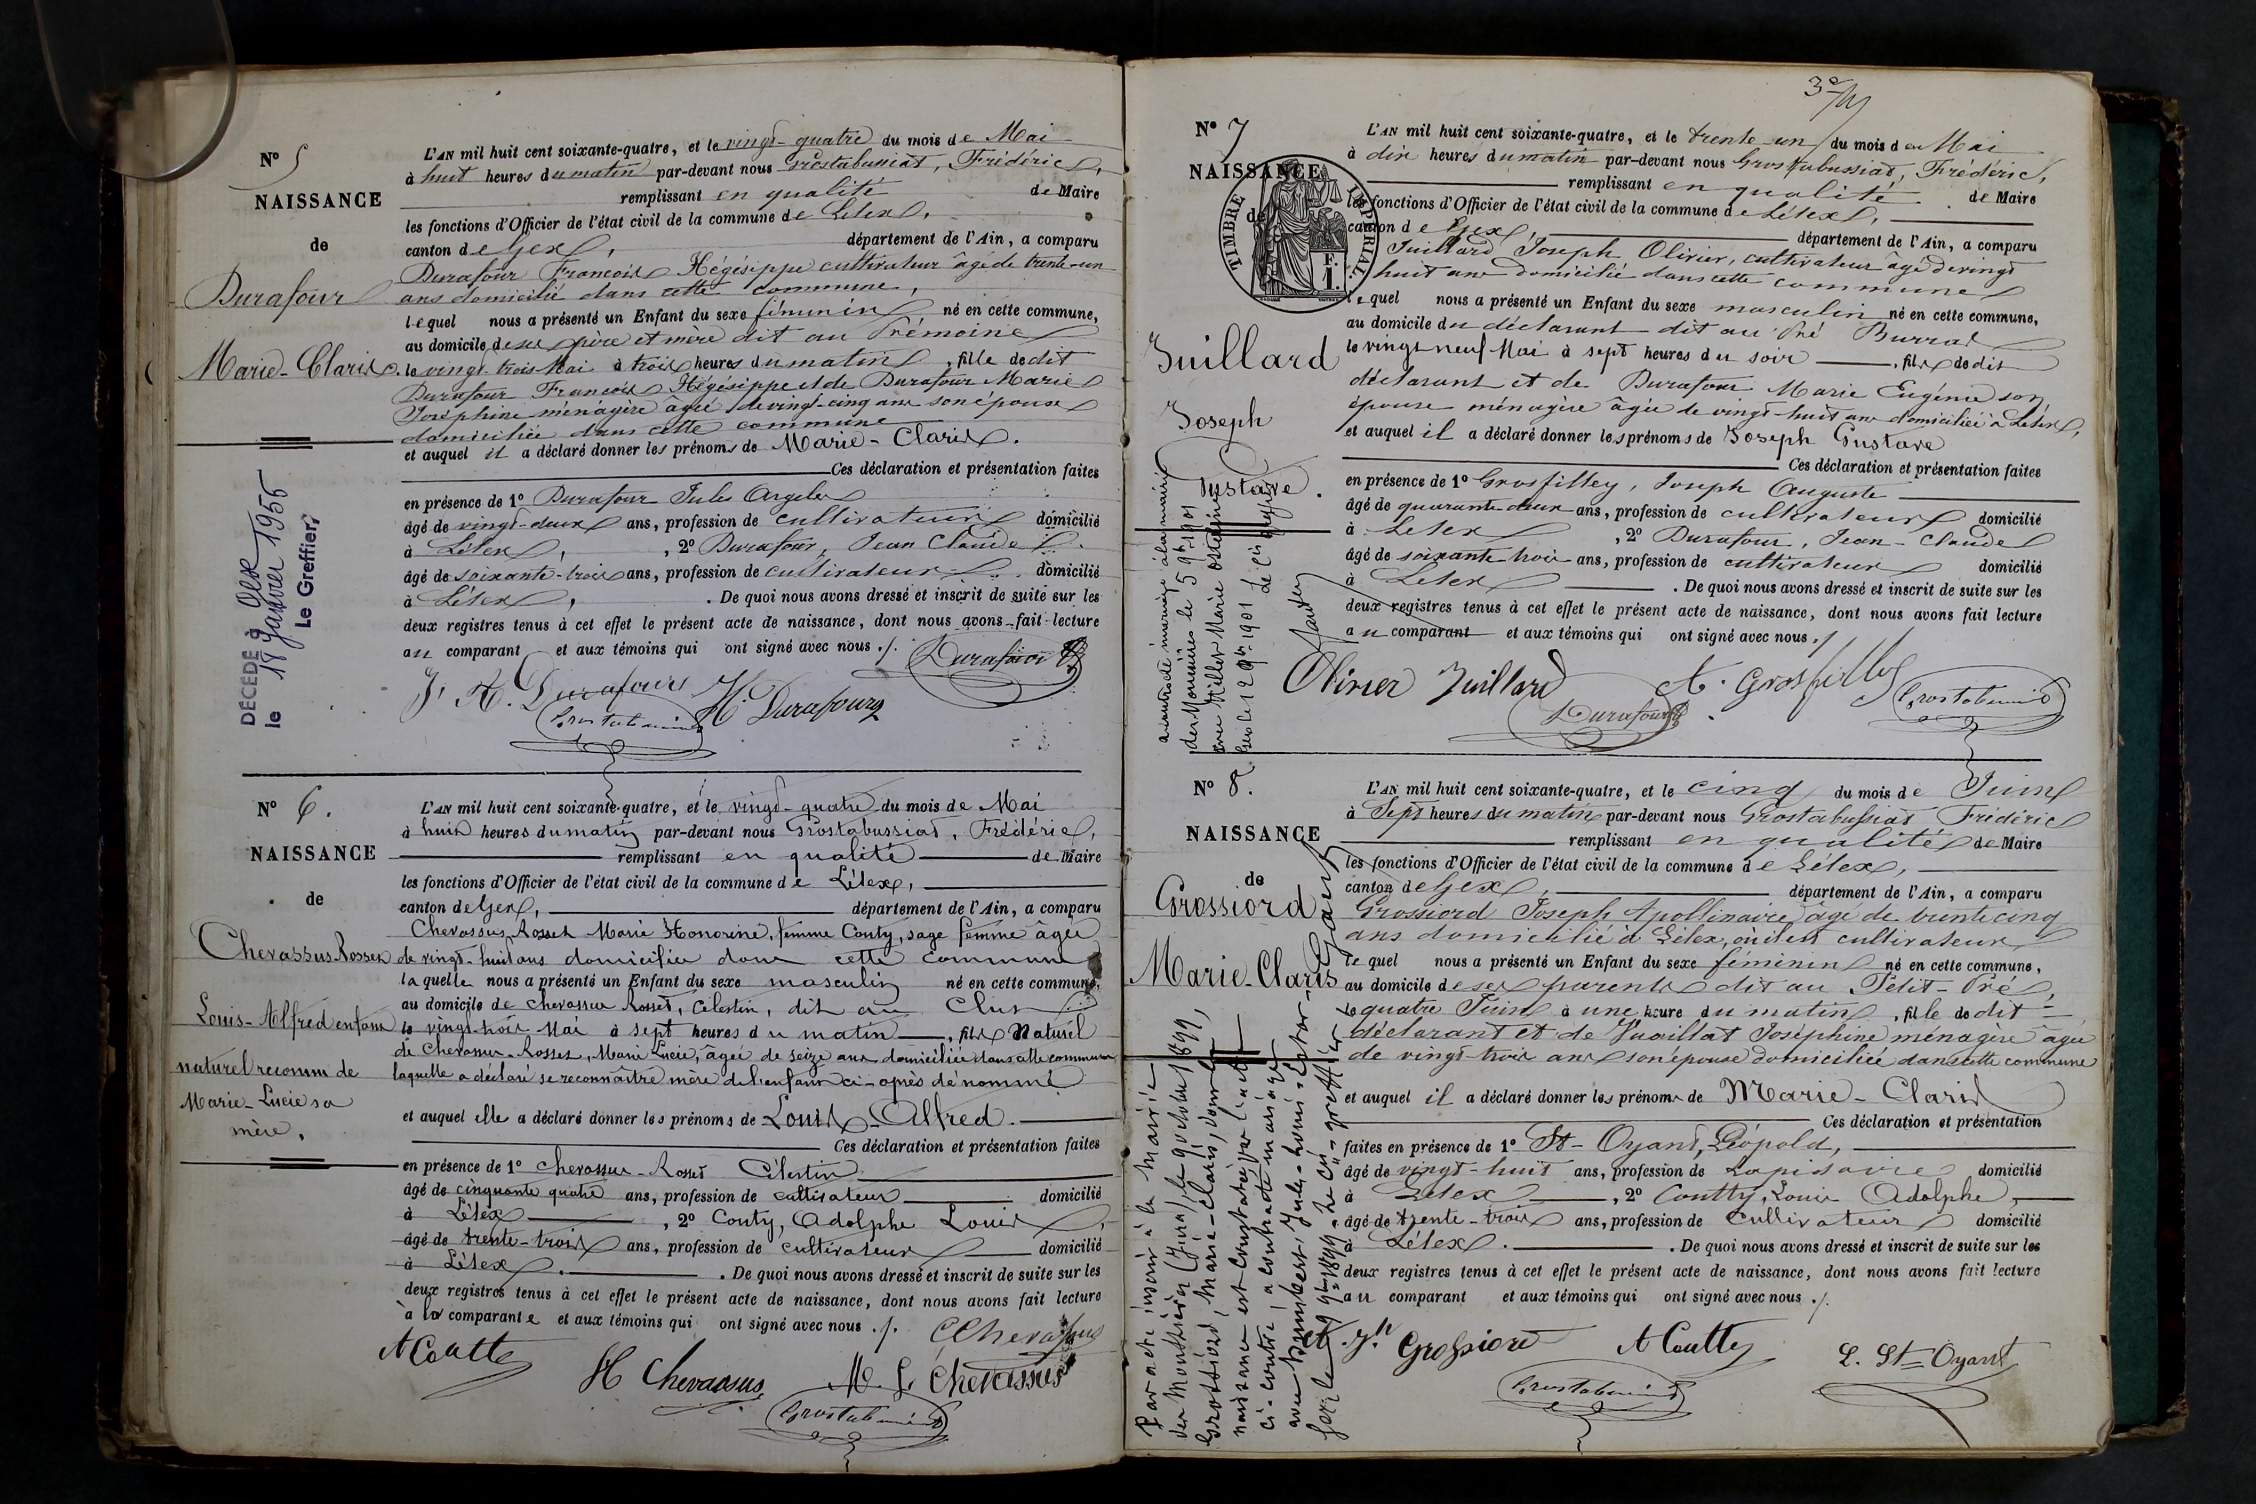 N° 5
NAISSANCE
de
Durafour
Marie-Claris.
DÉCÉDÉ à Gex
le 18 Janvier 1955
Le Greffier,
L'AN mil huit cent soixante-quatre, et le vingt-quatre du mois de Mai
à huit heures du matin par-devant nous Grostabussiat, Frédéric,
remplissant en qualité de Maire
les fonctions d'Officier de l'état civil de la commune de Lélex,
canton de Gex, département de l'Ain, a comparu
Durafour François Hégésippe cultivateur âgé de trente-un
ans domicilié dans cette commune,
lequel nous a présenté un Enfant du sexe féminin né en cette commune,
au domicile de ses père et mère dit au Trémoine
le vingt trois Mai à trois heures du matin, fille de dit
Durafour François Hégésippe et de Durafour Marie
Joséphine ménagère âgée de vingt-cinq ans son épouse
domiciliée dans cette commune
et auquel il a déclaré donner les prénoms de Marie-Claris.
Ces déclaration et présentation faites
en présence de 1° Durafour Jules
âgé de vingt-deux ans, profession de cultivateur domicilié
à Lélex, 2° Durafour, Jean Claude
âgé de soixante-trois ans, profession de cultivateur domicilié
à Lélex, . De quoi nous avons dressé et inscrit de suite sur les
deux registres tenus à cet effet le présent acte de naissance, dont nous avons fait lecture
au comparant et aux témoins qui ont signé avec nous ./.
Durafour
J. A. Durafour H. Durafour
Grostabussiat
N° 6.
NAISSANCE
de
Chevassus-Rosset
Louis-Alfred enfant
naturel reconnu de
Marie-Lucie sa
mère.
L'AN mil huit cent soixante-quatre, et le vingt-quatre du mois de Mai
à huit heures du matin par-devant nous Grostabussiat, Frédéric,
remplissant en qualité de Maire
les fonctions d'Officier de l'état civil de la commune de Lélex,
canton de Gex, département de l'Ain, a comparu
Chevassus Rosset Marie Honorine, femme Couty, sage femme âgée
de vingt-huit ans domiciliée dans cette commune
laquelle nous a présenté un Enfant du sexe masculin né en cette commune,
au domicile de Chevassus Rosset, Célestin, dit au
le vingt-trois Mai à sept heures du matin, fils Naturel
de Chevassus-Rosset, Marie Lucie, âgée de seize ans domiciliée dans cette commune
laquelle a déclaré se reconnaître mère de l'enfant ci-après dénommé
et auquel elle a déclaré donner les prénoms de Louis-Alfred.
Ces déclaration et présentation faites
en présence de 1° Chevassus-Rosset Célestin
âgé de cinquante quatre ans, profession de cultivateur domicilié
à Lélex, 2° Couty, Adolphe Louis,
âgé de trente-trois ans, profession de cultivateur domicilié
à Lélex. . De quoi nous avons dressé et inscrit de suite sur les
deux registres tenus à cet effet le présent acte de naissance, dont nous avons fait lecture
à la comparante et aux témoins qui ont signé avec nous ./.
A Coutty H Chevassus M. L. Chevassus
Grostabussiat
N° 7
NAISSANCE
de
TIMBRE IMPERIAL
1 F.
Juillard
Joseph
Gustave.
a contracté mariage à la mairie
des Mouilles le 5 9bre 1901
avec Millet Marie
Gex le 12 9bre 1901 Le Cis greffier
L'AN mil huit cent soixante-quatre, et le trente-un du mois de Mai
à dix heures du matin par-devant nous Grostabussiat, Frédéric,
remplissant en qualité de Maire
les fonctions d'Officier de l'état civil de la commune de Lélex,
canton de Gex, département de l'Ain, a comparu
Juillard Joseph Olivier, cultivateur âgé de vingt
huit ans domicilié dans cette commune
lequel nous a présenté un Enfant du sexe masculin né en cette commune,
au domicile du déclarant dit au Pré Burrat
le vingt neuf Mai à sept heures du soir, fils de dit
déclarant et de Durafour Marie Eugénie son
épouse ménagère âgée de vingt-huit ans domiciliée à Lélex,
et auquel il a déclaré donner les prénoms de Joseph Gustave
Ces déclaration et présentation faites
en présence de 1° Grosfilley, Joseph Auguste
âgé de quarante deux ans, profession de cultivateur domicilié
à Lélex, 2° Durafour, Jean-Claude
âgé de soixante trois ans, profession de cultivateur domicilié
à Lélex . De quoi nous avons dressé et inscrit de suite sur les
deux registres tenus à cet effet le présent acte de naissance, dont nous avons fait lecture
au comparant et aux témoins qui ont signé avec nous ./.
Olivier Juillard A. Grosfilley
Durafour Grostabussiat
N° 8.
NAISSANCE
de
Grossiord
Marie-Claris
Par acte inscrit à la Mairie
des Mouilles (Jura) le 9 octobre 1899,
Grossiord, Marie-Claris, dont la
naissance est constatée par l'acte
ci-contre, a contracté mariage
avec Humbert, Jules
Gex le 9 9bre 1899 Le Cis greffier
L'AN mil huit cent soixante-quatre, et le cinq du mois de Juin
à Sept heures du matin par-devant nous Grostabussiat Frédéric
remplissant en qualité de Maire
les fonctions d'Officier de l'état civil de la commune de Lélex,
canton de Gex, département de l'Ain, a comparu
Grossiord Joseph Apollinaire âgé de trente cinq
ans domicilié à Lélex, où il est cultivateur
lequel nous a présenté un Enfant du sexe féminin né en cette commune,
au domicile de ses parents dit au Petit-Pré,
le quatre Juin à une heure du matin, fille de dit
déclarant et de Vuaillat Joséphine ménagère âgée
de vingt-trois ans son épouse domiciliée dans cette commune
et auquel il a déclaré donner les prénoms de Marie-Claris
Ces déclaration et présentation
faites en présence de 1° St-Oyant, Léopold,
âgé de vingt-huit ans, profession de Lapidaire domicilié
à Lélex, 2° Coutty, Louis Adolphe,
âgé de trente-trois ans, profession de Cultivateur domicilié
à Lélex. . De quoi nous avons dressé et inscrit de suite sur les
deux registres tenus à cet effet le présent acte de naissance, dont nous avons fait lecture
au comparant et aux témoins qui ont signé avec nous ./.
Grossiord A Coutty L. St-Oyant
Grostabussiat